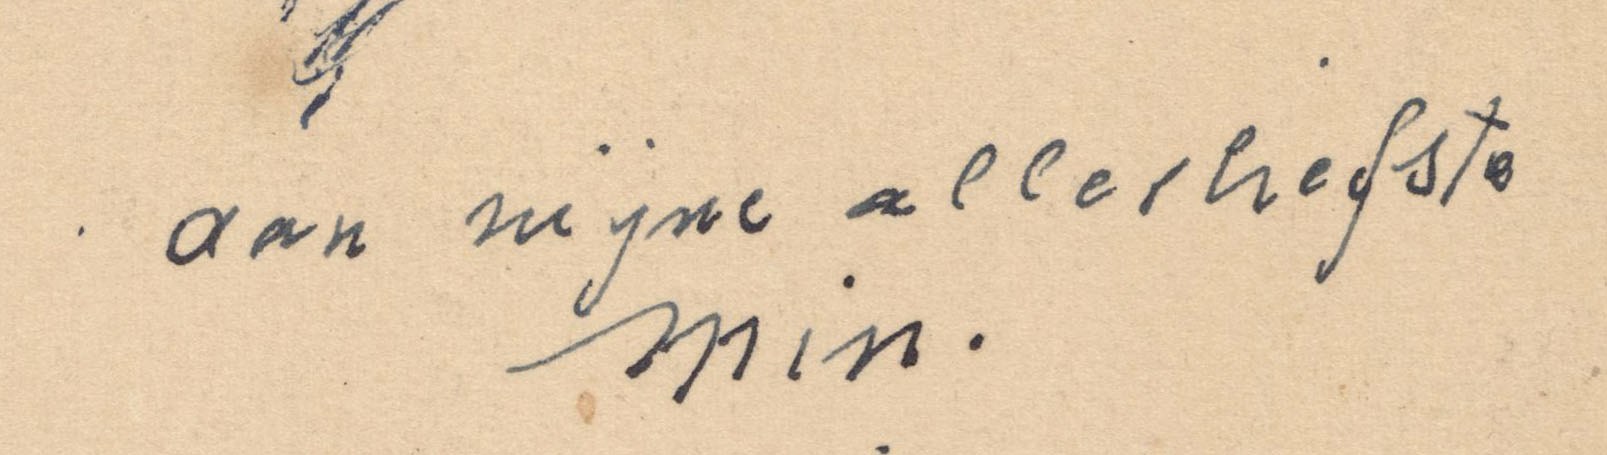 aan mijne allerliefste
Min.